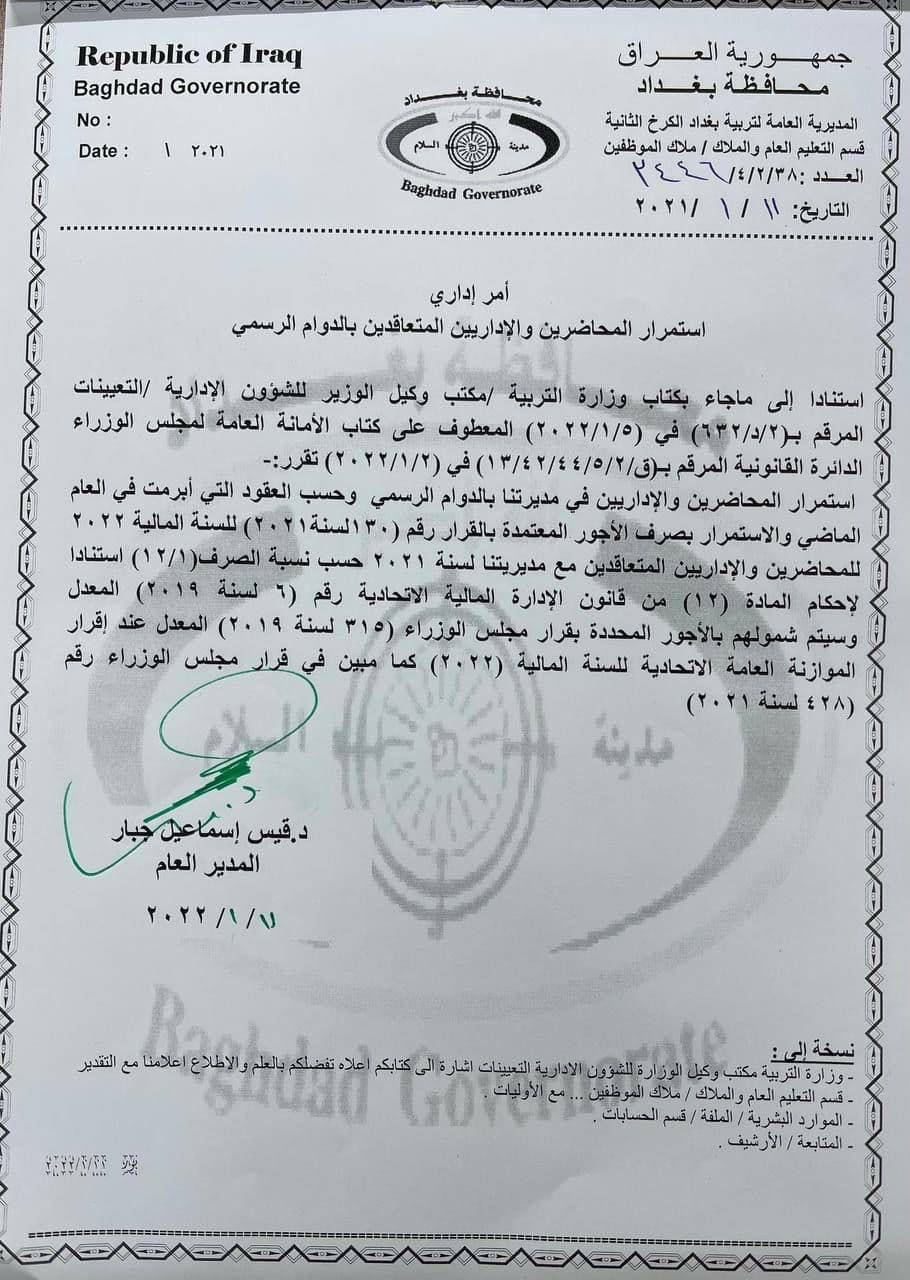 Republic of Iraq
Baghdad Governorate
No :
Date :     ١  ٢٠٢١
محافظة بغداد
الله اكبر
مدينة السلام
Baghdad Governorate
جمهورية العراق
محافظة بغداد
المديرية العامة لتربية بغداد الكرخ الثانية
قسم التعليم العام والملاك / ملاك الموظفين
العدد :٣٨/٢/٤/٢٤٤٦
التاريخ: ١١ / ١ /٢٠٢١
أمر إداري
استمرار المحاضرين والإداريين المتعاقدين بالدوام الرسمي
استنادا إلى ماجاء بكتاب وزارة التربية /مكتب وكيل الوزير للشؤون الإدارية /التعيينات
المرقم بـ(٦٣٢/د/٢) في (٢٠٢٢/١/٥) المعطوف على كتاب الأمانة العامة لمجلس الوزراء
الدائرة القانونية المرقم بـ(ق/١٣/٤٢/٤٤/٥/٢) في (٢٠٢٢/١/٢) تقرر:-
استمرار المحاضرين والإداريين في مديرتنا بالدوام الرسمي وحسب العقود التي أبرمت في العام
الماضي والاستمرار بصرف الأجور المعتمدة بالقرار رقم (١٣٠لسنة٢٠٢١) للسنة المالية ٢٠٢٢
للمحاضرين والإداريين المتعاقدين مع مديريتنا لسنة ٢٠٢١ حسب نسبة الصرف(١٢/١) استنادا
لإحكام المادة (١٢) من قانون الإدارة المالية الاتحادية رقم (٦ لسنة ٢٠١٩) المعدل
وسيتم شمولهم بالأجور المحددة بقرار مجلس الوزراء (٣١٥ لسنة ٢٠١٩) المعدل عند إقرار
الموازنة العامة الاتحادية للسنة المالية (٢٠٢٢) كما مبين في قرار مجلس الوزراء رقم
(٤٢٨ لسنة ٢٠٢١)
د.قيس إسماعيل جبار
المدير العام
١١/ ١/ ٢٠٢٢
مدينة السلام
Baghdad Governorate
نسخة إلى :
- وزارة التربية مكتب وكيل الوزارة للشؤون الادارية التعيينات اشارة الى كتابكم اعلاه تفضلكم بالعلم والاطلاع اعلامنا مع التقدير
- قسم التعليم العام والملاك / ملاك الموظفين ... مع الأوليات .
- الموارد البشرية / الملفة / قسم الحسابات .
- المتابعة / الأرشيف .